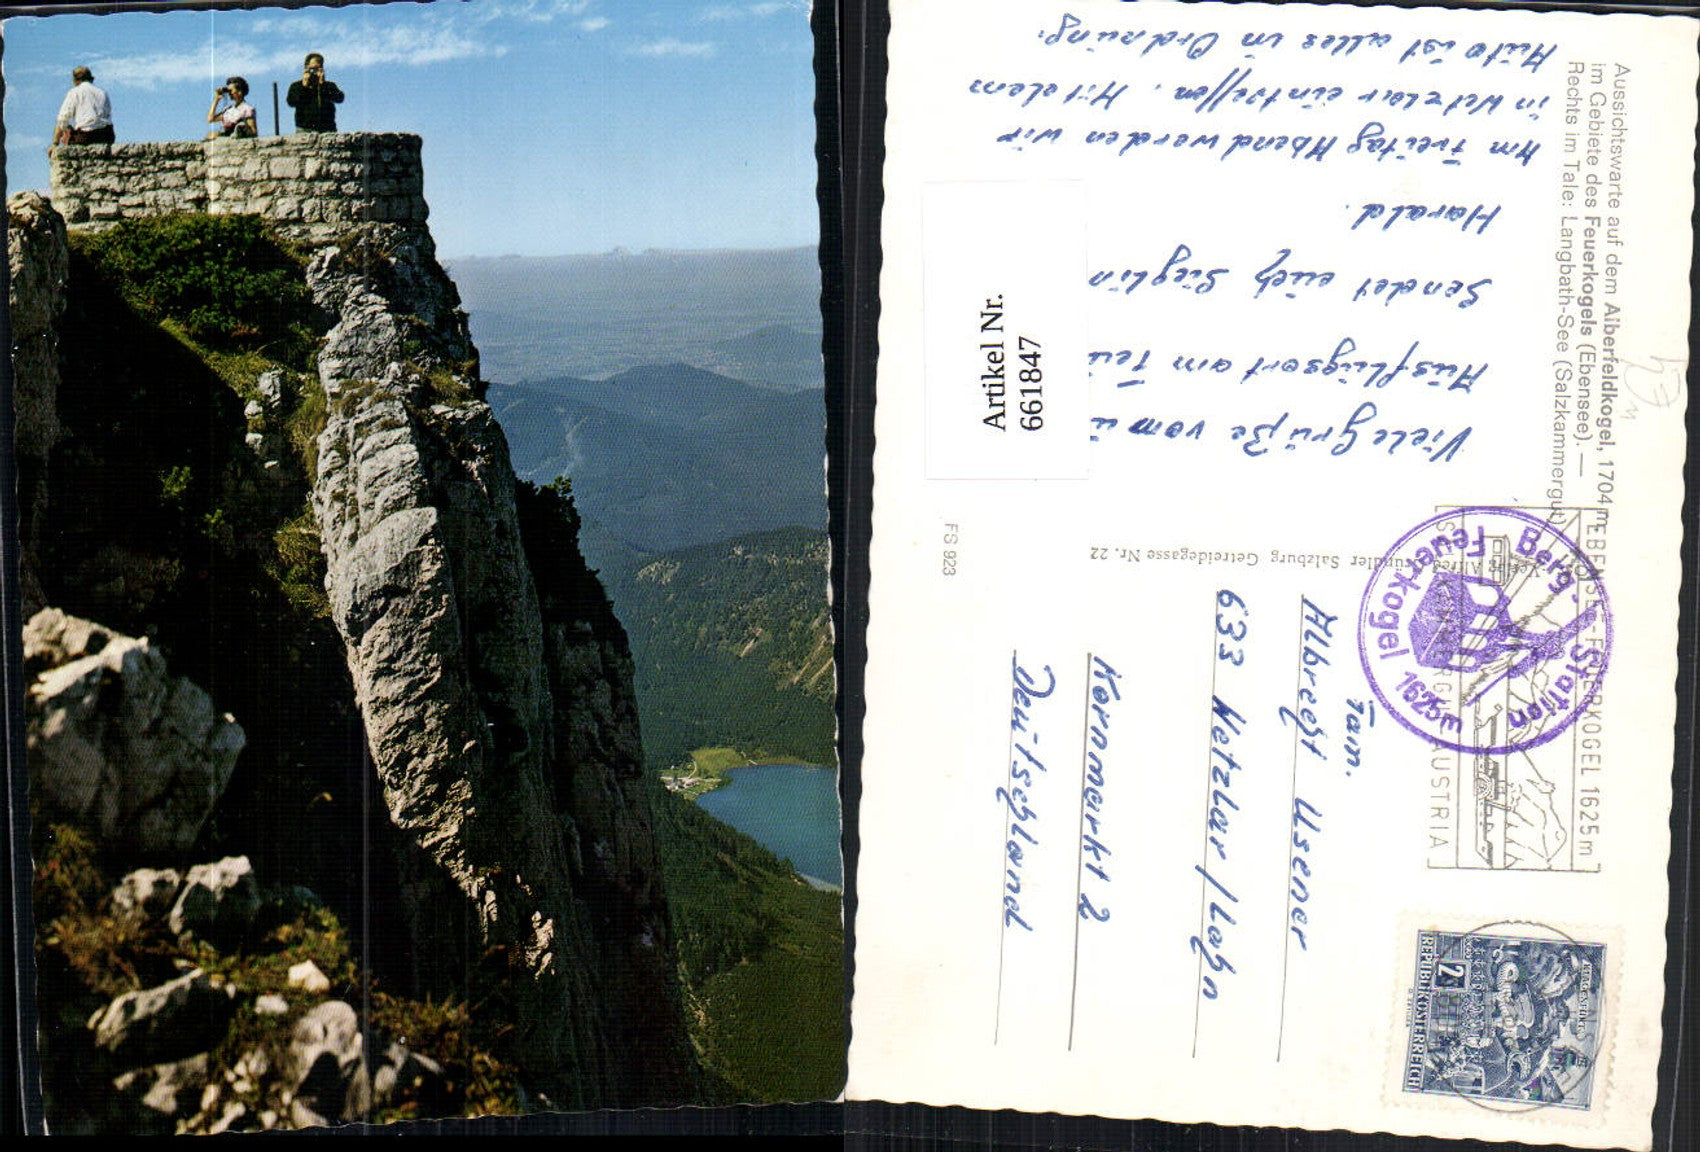 Aussichtswarte auf dem Alberfeldkogel, 1704 m,
im Gebiete des Feuerkogels (Ebensee). —
Rechts im Tale: Langbath-See (Salzkammergut)
Viele Grüße vom
Ausflugsort am
Sendet euch Sieglin
Harald.
Am Freitag Abend werden wir
in Wetzlar eintreffen. Mit dem
Auto ist alles in Ordnung.
Artikel Nr.
661847
FS 923
Verlag Alfred Gründler Salzburg Getreidegasse Nr. 22
EBENSEE-FEUERKOGEL 1625 m
AUSTRIA
Berg-Station
Feuerkogel 1625m
REPUBLIK ÖSTERREICH
2
Fam.
Albrecht Usener
633 Wetzlar / Lahn
Kornmarkt 2
Deutschland